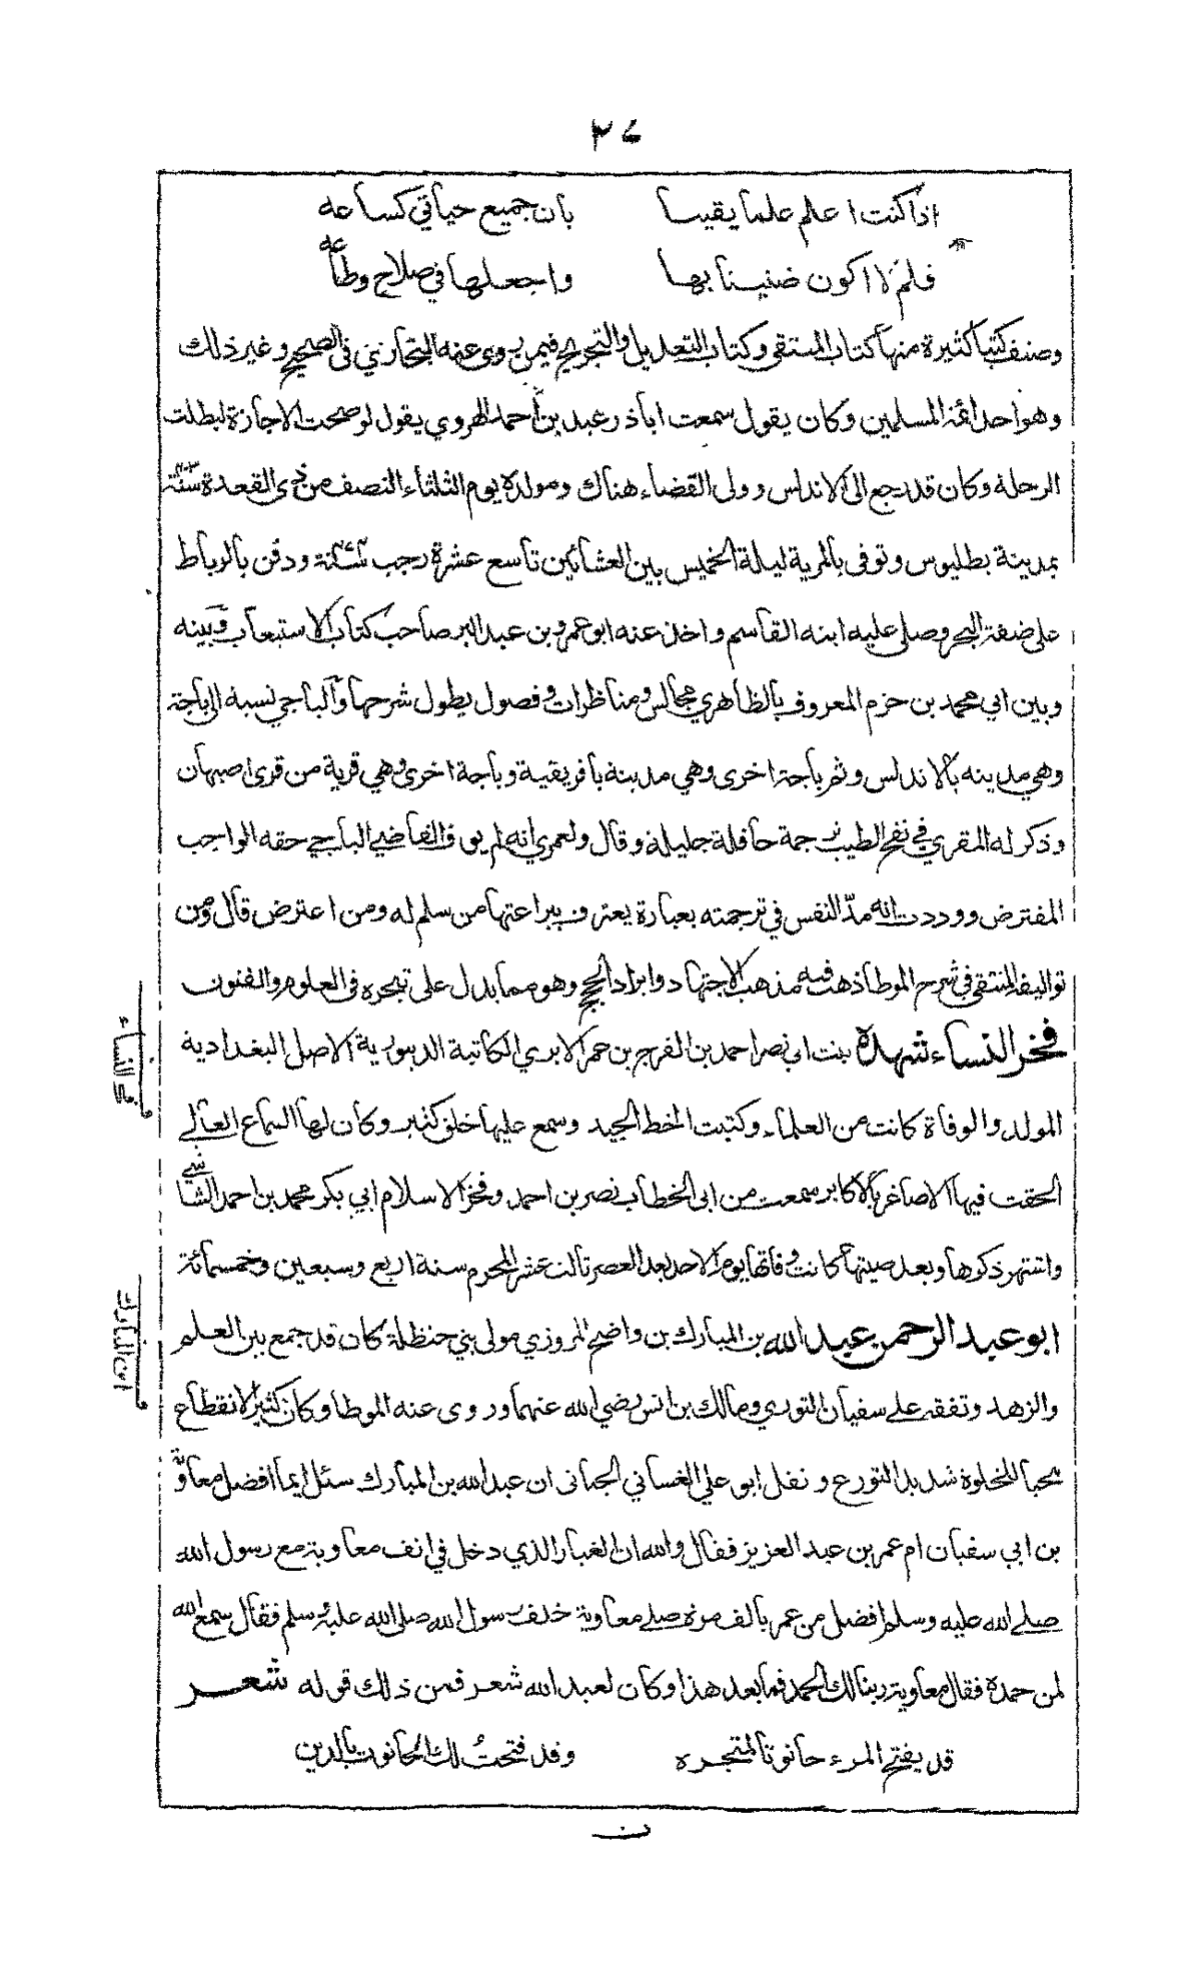 ٣٤
اذا كنت اعلم علما يقينا بان جميع حياتي كساعه
فلم لا اكون ضنينا بها واجعلها في صلاح وطاعه
وصنف كتبا كثيرة منها كتاب المنتقى وكتاب التعديل والتجريح فيمن روى عنه البخاري في الصحيح وغير ذلك
وهو احد ائمة المسلمين وكان يقول سمعت اباذر عبد بن احمد الهروي يقول لو صحت الاجازة لبطلت
الرحلة وكان قد رجع الى الاندلس وولى القضاء هناك ومولده يوم الثلثاء النصف من ذي القعدة سنة
بمدينة بطليوس وتوفى بالمرية ليلة الخميس بين العشائين تاسع عشرة رجب ودفن بالرباط
على ضفة البحر وصلى عليه ابنه القاسم واخذ عنه ابو عمرو بن عبد البر صاحب كتاب الاستيعاب وبينه
وبين ابي محمد بن حزم المعروف بالظاهري مجالس ومناظرات وفصول يطول شرحها والباجي نسبة الى باجة
وهي مدينه بالاندلس وثم باجة اخرى وهي مدينة بافريقية وباجة اخرى وهي قرية من قرى اصبهان
وذكر له المقري في نفح الطيب ترجمة حافلة جليلة وقال ولعمري انه لم يوف القاضي الباجي حقه الواجب
المفترض ووددت انه مدّ النفس في ترجمته بعبارة يعترف ببراعتها من سلم له ومن اعترض قال ومن
تواليفه المنتقى في شرح الموطا ذهب فيه مذهب الاجتهاد وايراد الحجج وهو مما يدل على تبحره في العلوم والفنون
فخر النساء شهدة بنت ابي نصر احمد بن الفرج بن عمر الابري الكاتبة الدينورية الاصل البغدادية
فخر النساء
المولد والوفاة كانت من العلماء وكتبت الخط الجيد وسمع عليها خلق كثير وكان لها السماع العالي
الحقت فيها الاصاغر بالاكابر سمعت من ابي الخطاب نصر بن احمد وفخر الاسلام ابي بكر محمد بن احمد الشاشي
واشتهر ذكرها وبعد صيتها كانت وفاتها يوم الاحد بعد العصر ثالث عشر المحرم سنة اربع وسبعين وخمسمائة
ابو عبد الرحمن عبد الله بن المبارك بن واضح المروزي مولى بني حنظلة كان قد جمع بين العلم
ابن المبارك
والزهد وتفقه على سفيان الثوري ومالك بن انس رضي الله عنهما وروى عنه الموطا وكان كثير الانقطاع
محبا للخلوة شديد التورع ونقل ابو علي الغساني الجياني ان عبد الله بن المبارك سئل ايما افضل معاوية
بن ابي سفيان ام عمر بن عبد العزيز فقال والله ان الغبار الذي دخل في انف معاوية مع رسول الله
صلى الله عليه وسلم افضل من عمر بالف مرة صلى معاوية خلف رسول الله صلى الله عليه وسلم فقال سمع الله
لمن حمده فقال معاوية ربنا لك الحمد فما بعد هذا وكان لعبد الله شعر فمن ذلك قوله شعر
قد يفتح المرء حانوتا لمتجره وقد فتحت لك الحانوت بالدين